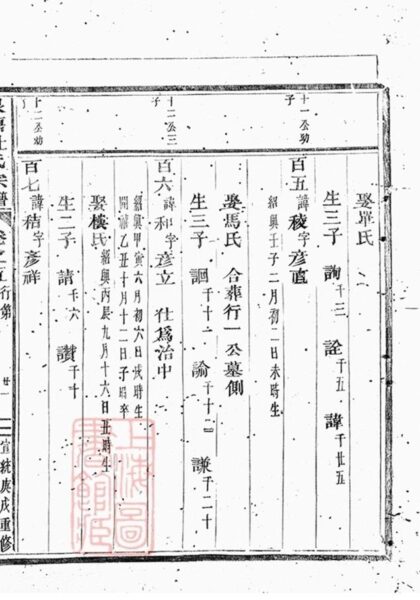 娶單氏
生三子 詢千三 詮千五 諱千廿五
十一公幼子
百五諱稜字彥直
紹興壬子二月初一日未時生
娶馬氏 合葬行一公墓側
生三子 千十一 諭千十二 謙千二十
十二公三子
百六諱和字彥立 仕爲治中
紹興甲寅六月初六日戌時生
開禧乙丑十月十二日子時卒
娶樓氏 紹興丙辰九月十六日丑時生
生二子 請千六 讚千十
十二公幼子
百七諱秸字彥祥
杜氏宗譜 卷之五行第 廿一 宣統庚戌重修
上海圖書館藏